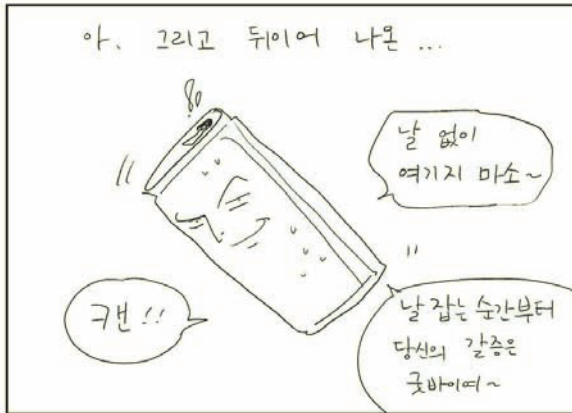 아, 그리고 뒤이어 나온 ...
날 없이
여기지 마소~
캔!!
날 잡는 순간부터
당신의 갈증은
굿바이여~